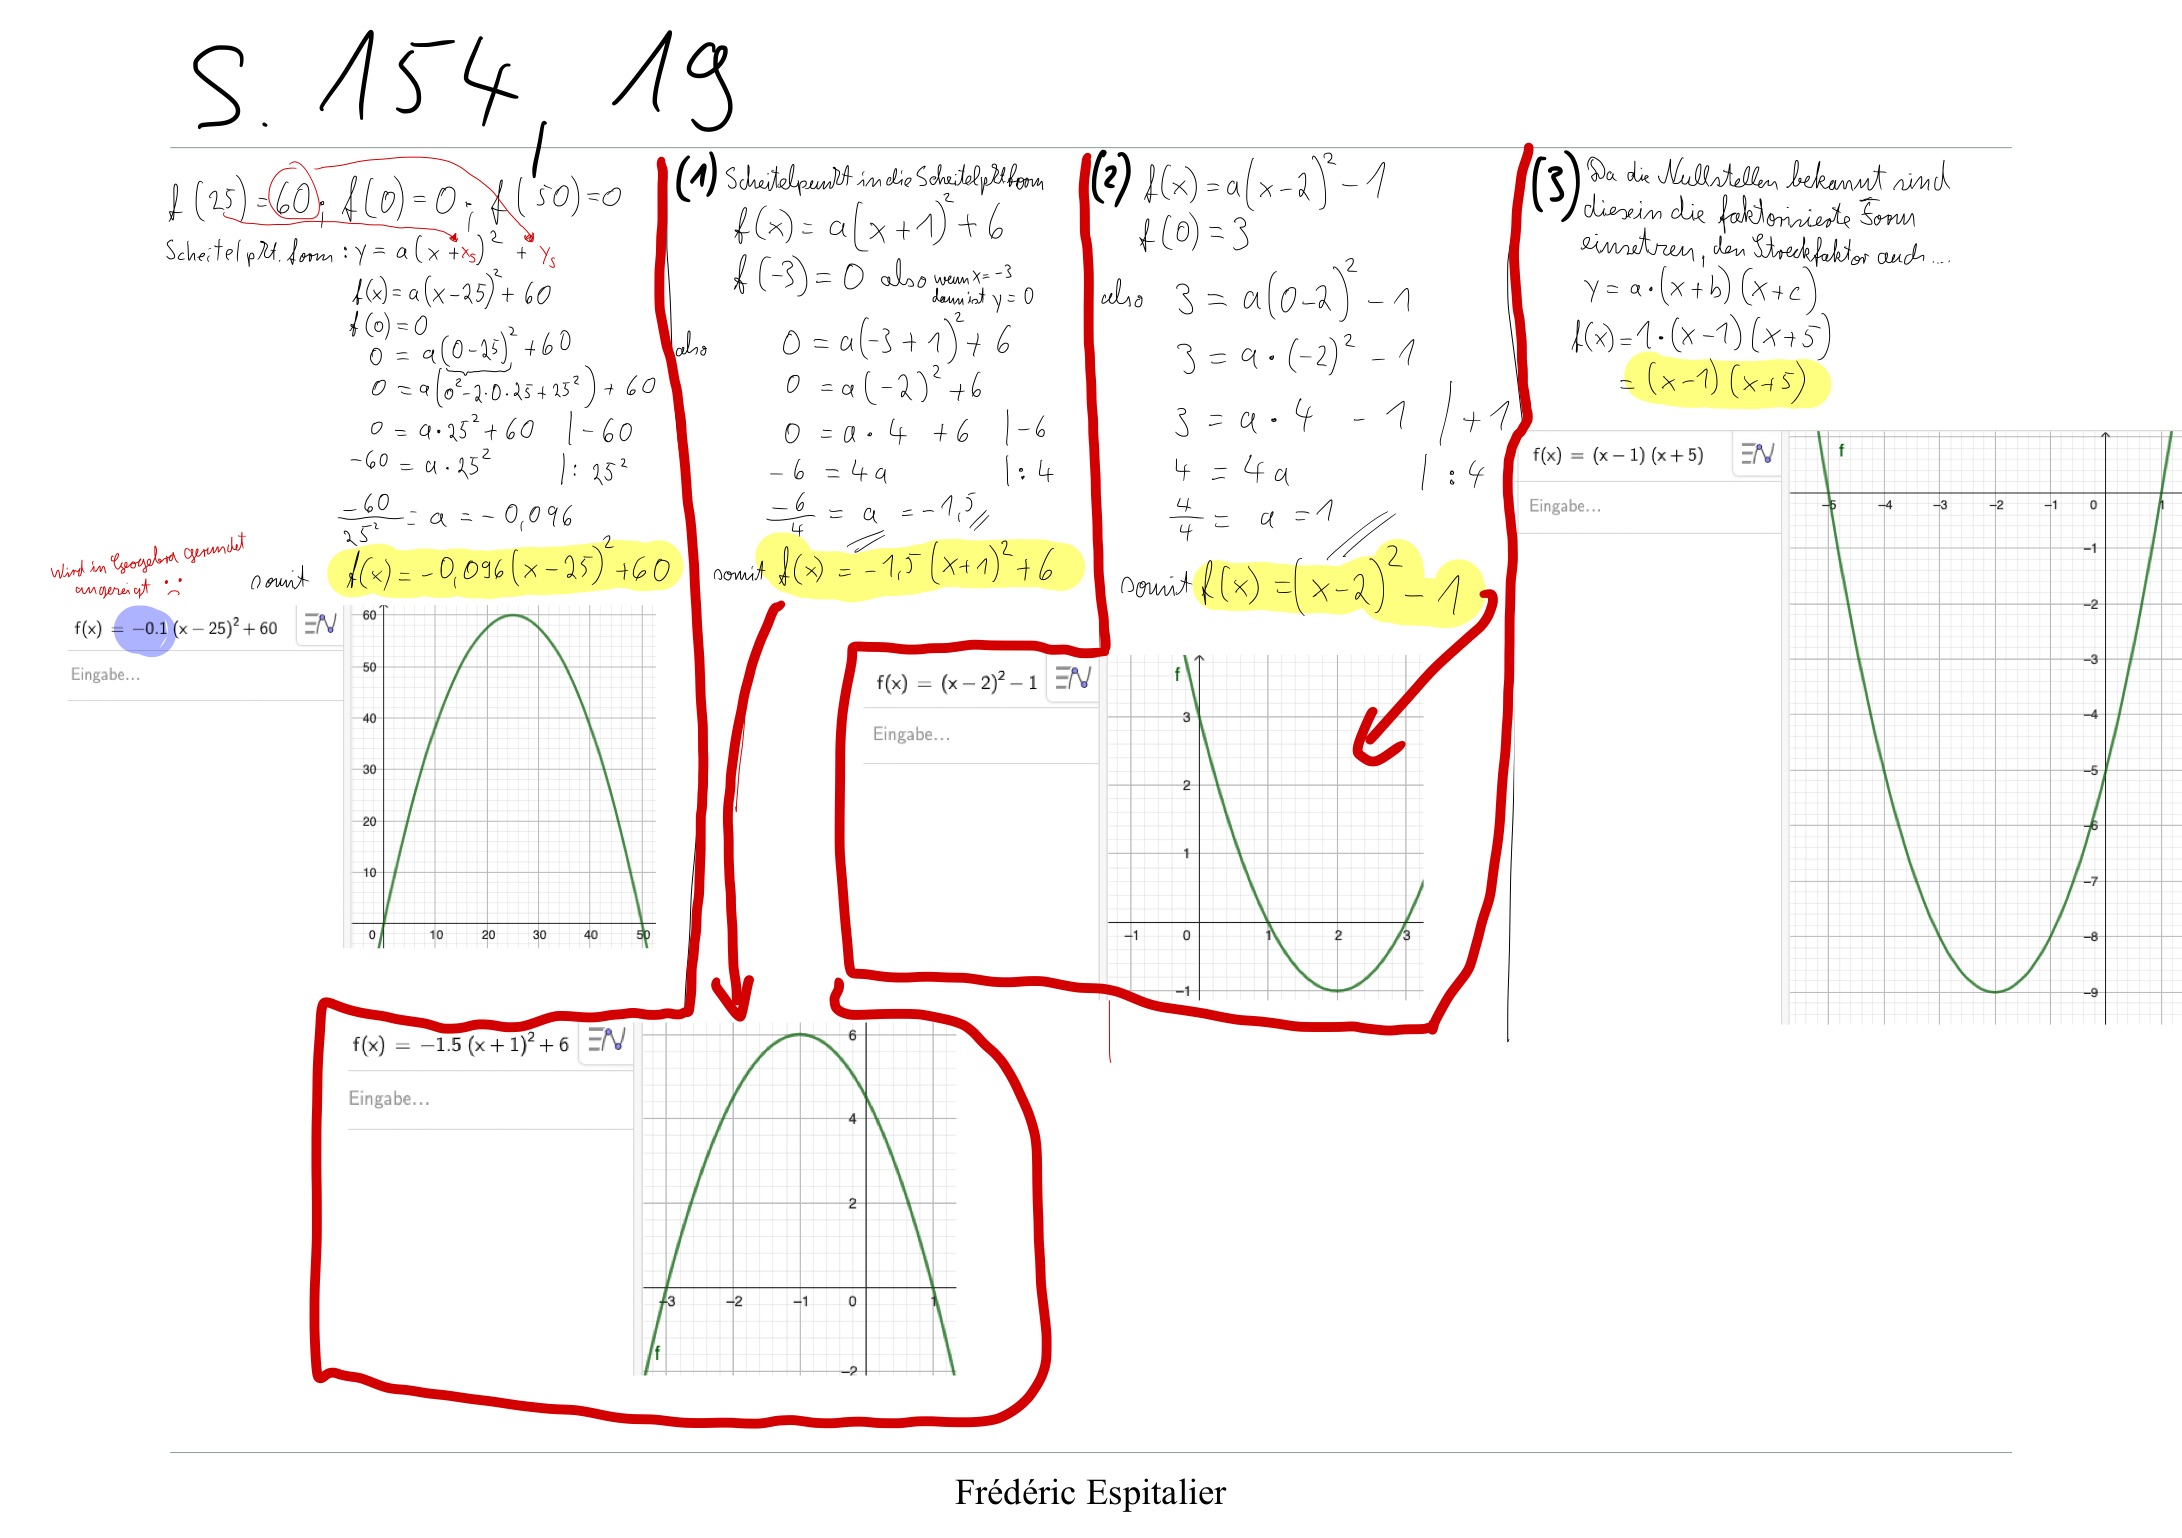 S. 154, 19
f(25) = 60; f(0) = 0; f(50) = 0
Scheitelpkt. form: y = a(x + xs)² + ys
f(x) = a(x-25)² + 60
f(0) = 0
0 = a(0-25)² + 60
0 = a(0²-2·0·25+25²) + 60
0 = a·25² + 60 | -60
-60 = a·25² | : 25²
-60/25² = a = -0,096
somit f(x) = -0,096(x-25)² + 60
Wird in Geogebra gerundet
angezeigt :(
f(x) = −0.1 (x − 25)² + 60
Eingabe...
60
50
40
30
20
10
0 10 20 30 40 50
(1) Scheitelpunkt in die Scheitelpktform
f(x) = a(x+1)² + 6
f(-3) = 0 also wenn x = -3
dann ist y = 0
also 0 = a(-3+1)² + 6
0 = a(-2)² + 6
0 = a·4 + 6 | -6
-6 = 4a | : 4
-6/4 = a = -1,5
somit f(x) = -1,5(x+1)² + 6
f(x) = −1.5 (x + 1)² + 6
Eingabe...
6
4
2
−3 −2 −1 0 1
f
−2
(2) f(x) = a(x-2)² - 1
f(0) = 3
also 3 = a(0-2)² - 1
3 = a·(-2)² - 1
3 = a·4 - 1 | +1
4 = 4a | : 4
4/4 = a = 1
somit f(x) = (x-2)² - 1
f(x) = (x − 2)² − 1
Eingabe...
f
3
2
1
−1 0 1 2 3
−1
(3) Da die Nullstellen bekannt sind
diese in die faktorisierte Form
einsetzen, den Streckfaktor auch...
y = a·(x+b)(x+c)
f(x) = 1·(x-1)(x+5)
= (x-1)(x+5)
f(x) = (x − 1) (x + 5)
Eingabe...
f
−5 −4 −3 −2 −1 0 1
−1
−2
−3
−4
−5
−6
−7
−8
−9
Frédéric Espitalier